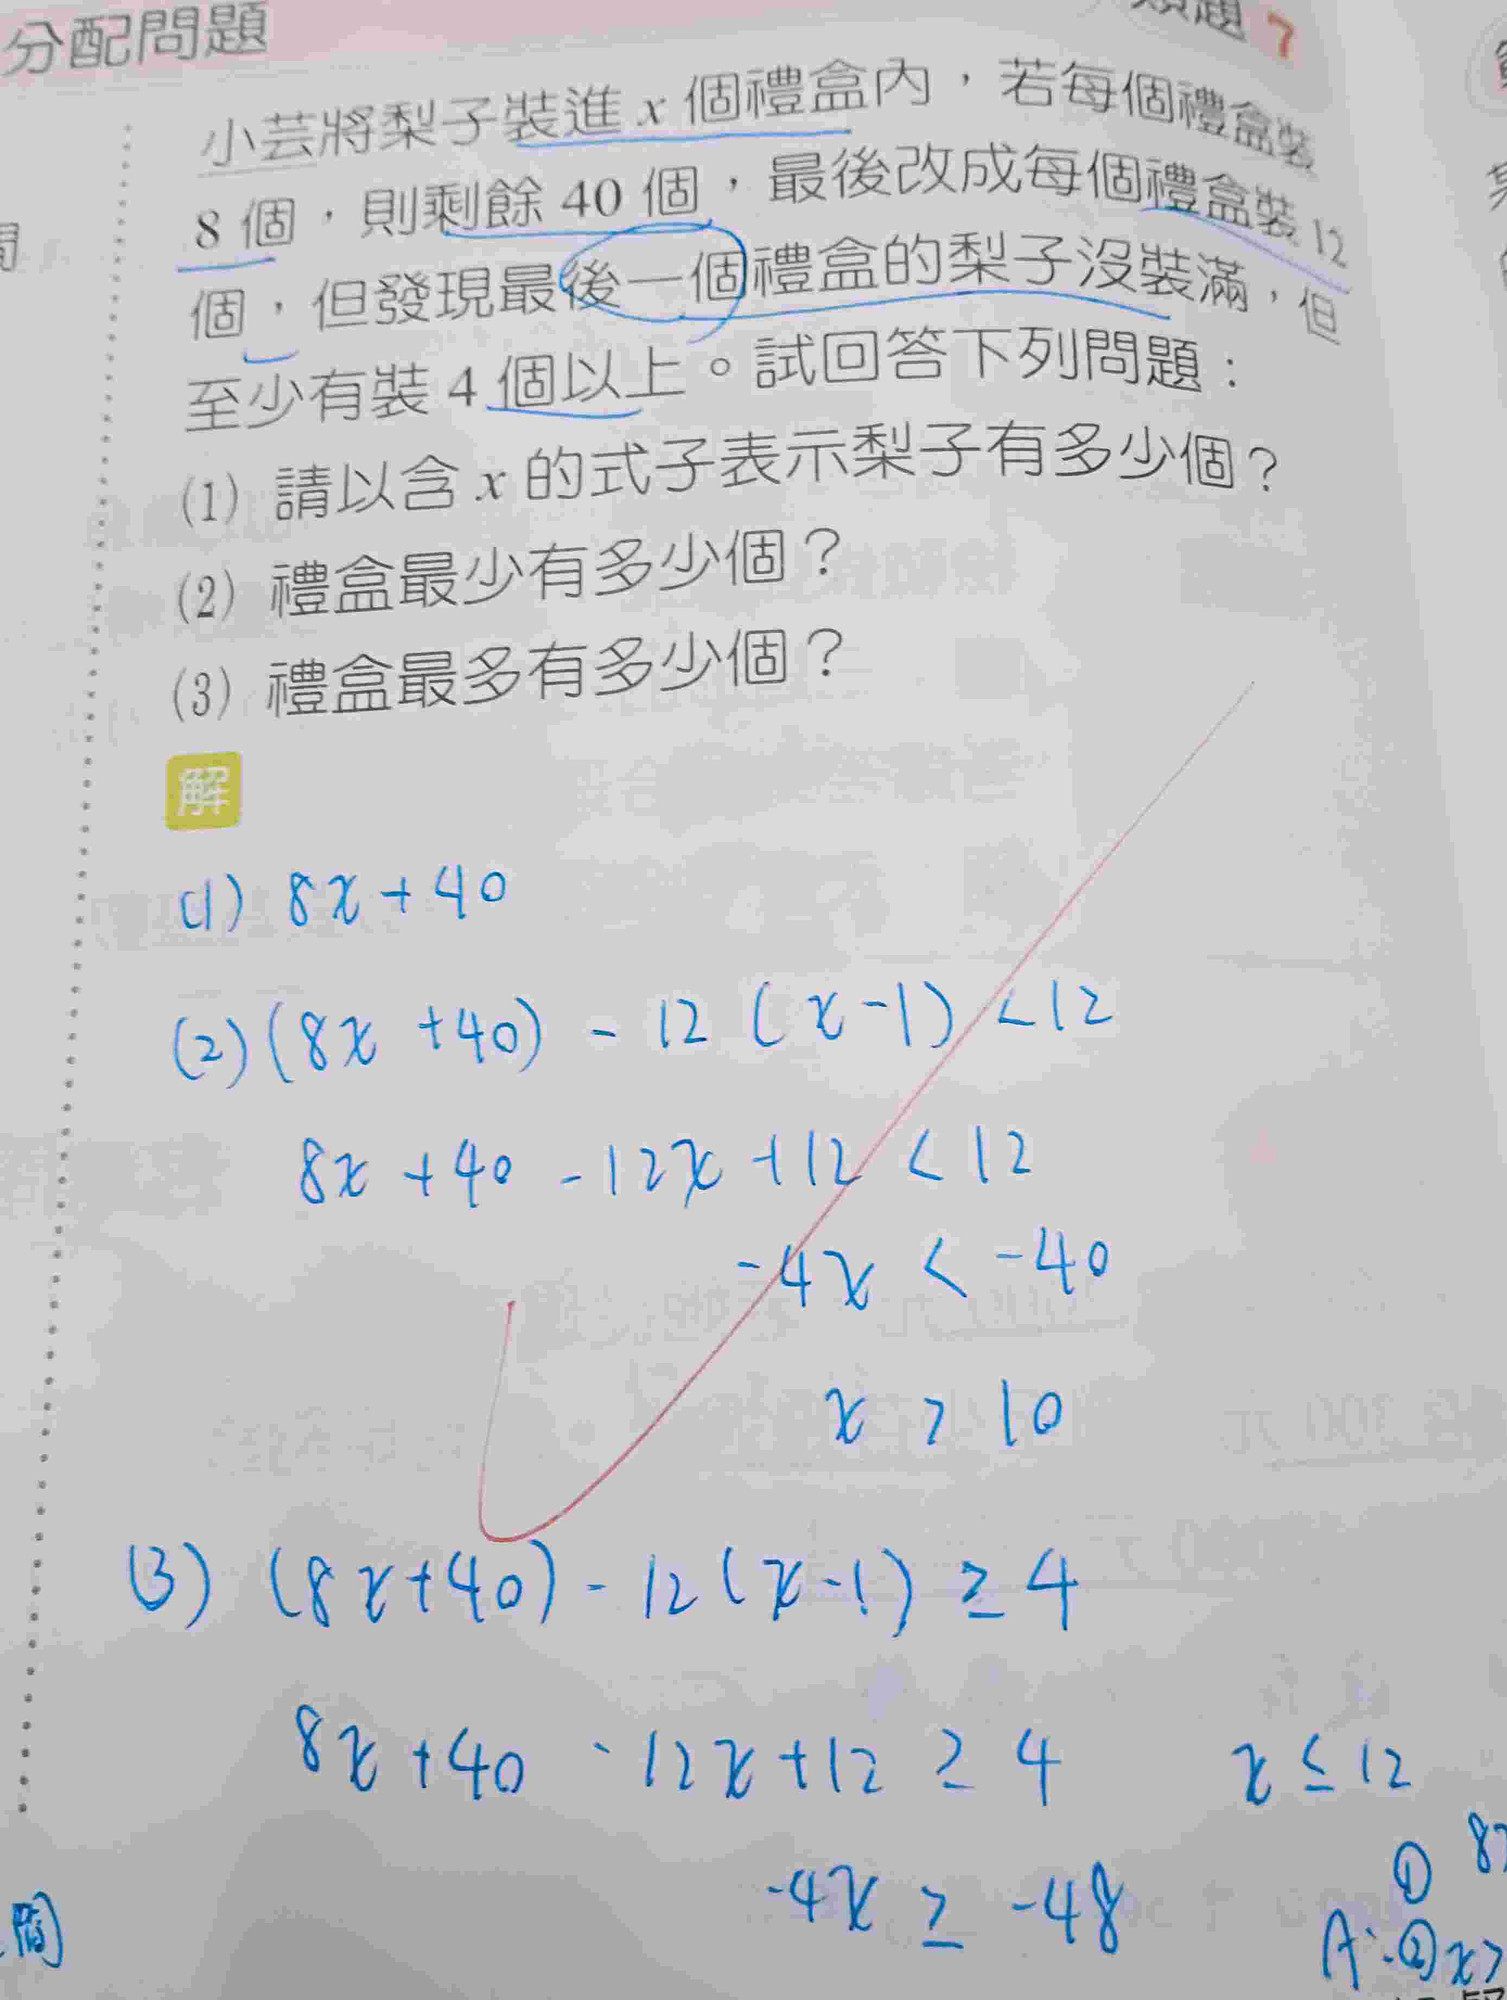 分配問題
題 7
小芸將梨子裝進 x 個禮盒內，若每個禮盒裝
8 個，則剩餘 40 個，最後改成每個禮盒裝 12
個，但發現最後一個禮盒的梨子沒裝滿，但
至少有裝 4 個以上。試回答下列問題：
(1) 請以含 x 的式子表示梨子有多少個？
(2) 禮盒最少有多少個？
(3) 禮盒最多有多少個？
解
(1) 8x + 40
(2) (8x + 40) - 12 (x - 1) < 12
8x + 40 - 12x + 12 < 12
-4x < -40
x > 10
(3) (8x + 40) - 12 (x - 1) ≥ 4
8x + 40 - 12x + 12 ≥ 4
x ≤ 12
-4x ≥ -48
① 8
A: ② x >